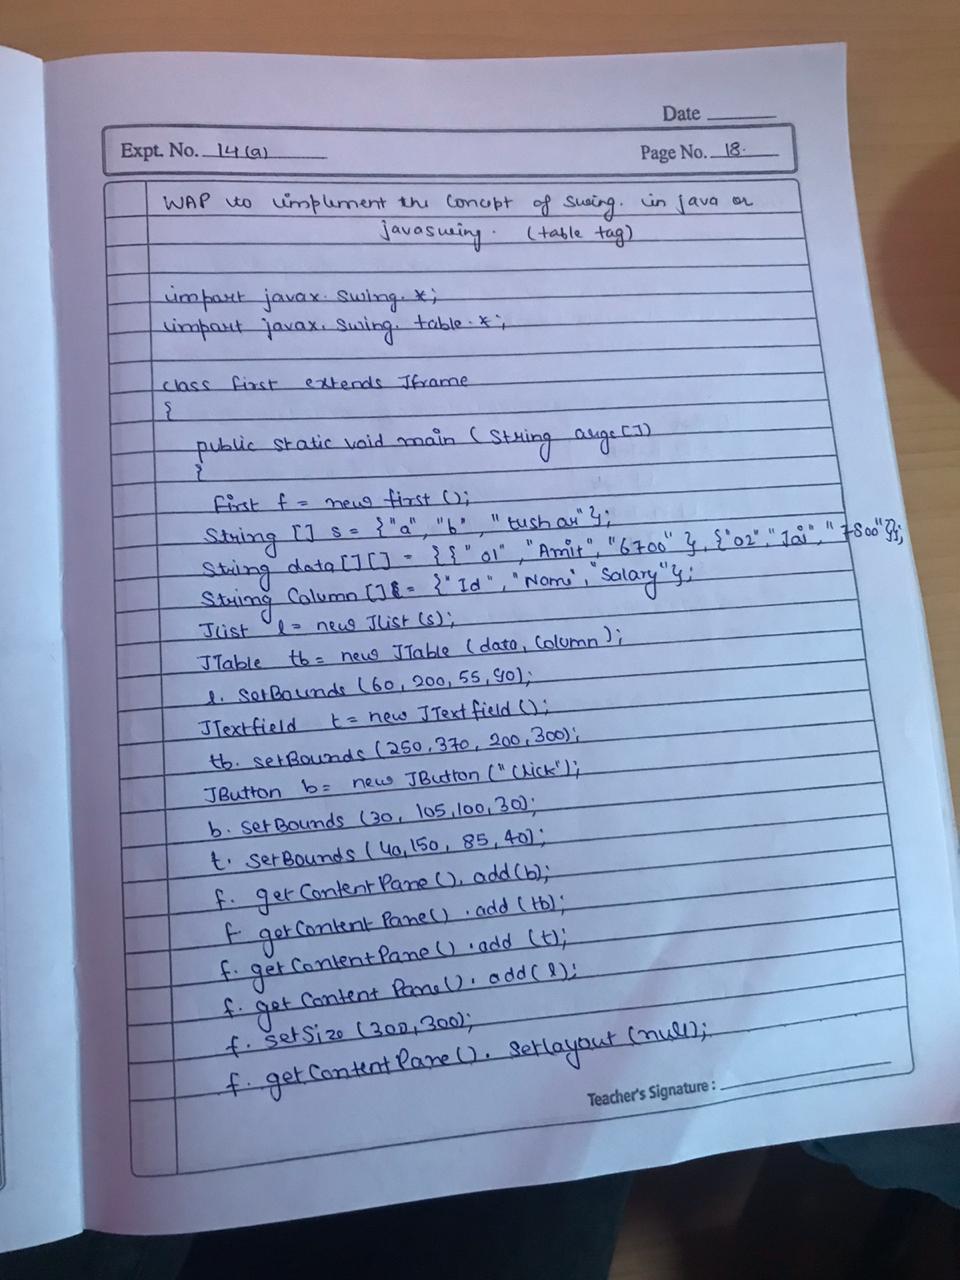 Date
Expt. No. 14(a)
Page No. 18.
WAP to implement the Concept of swing. in java or
javaswing. (table tag)
import javax.swing.*;
import javax.swing.table.*;
class first extends Jframe
{
public static void main (String args[])
{
First f = new first ();
String [] s = {"a", "b", "tushar"};
String data [][] = {{"01", "Amit", "6700"}, {"02", "Jai", "7800"}};
String Column [] = {"Id", "Name", "Salary"};
JList l = new JList (s);
JTable tb = new JTable (data, Column);
l. setBounds (60, 200, 55, 90);
JTextfield t = new JTextfield ();
tb. setBounds (250, 370, 200, 300);
JButton b = new JButton ("Click");
b. setBounds (30, 105, 100, 30);
t. setBounds (40, 150, 85, 40);
f. getContentPane (). add (b);
f getContentPane () . add (tb);
f. getContentPane () . add (t);
f. getContentPane (). add (l);
f. setSize (300, 300);
f. getContentPane (). setlayout (null);
Teacher's Signature :